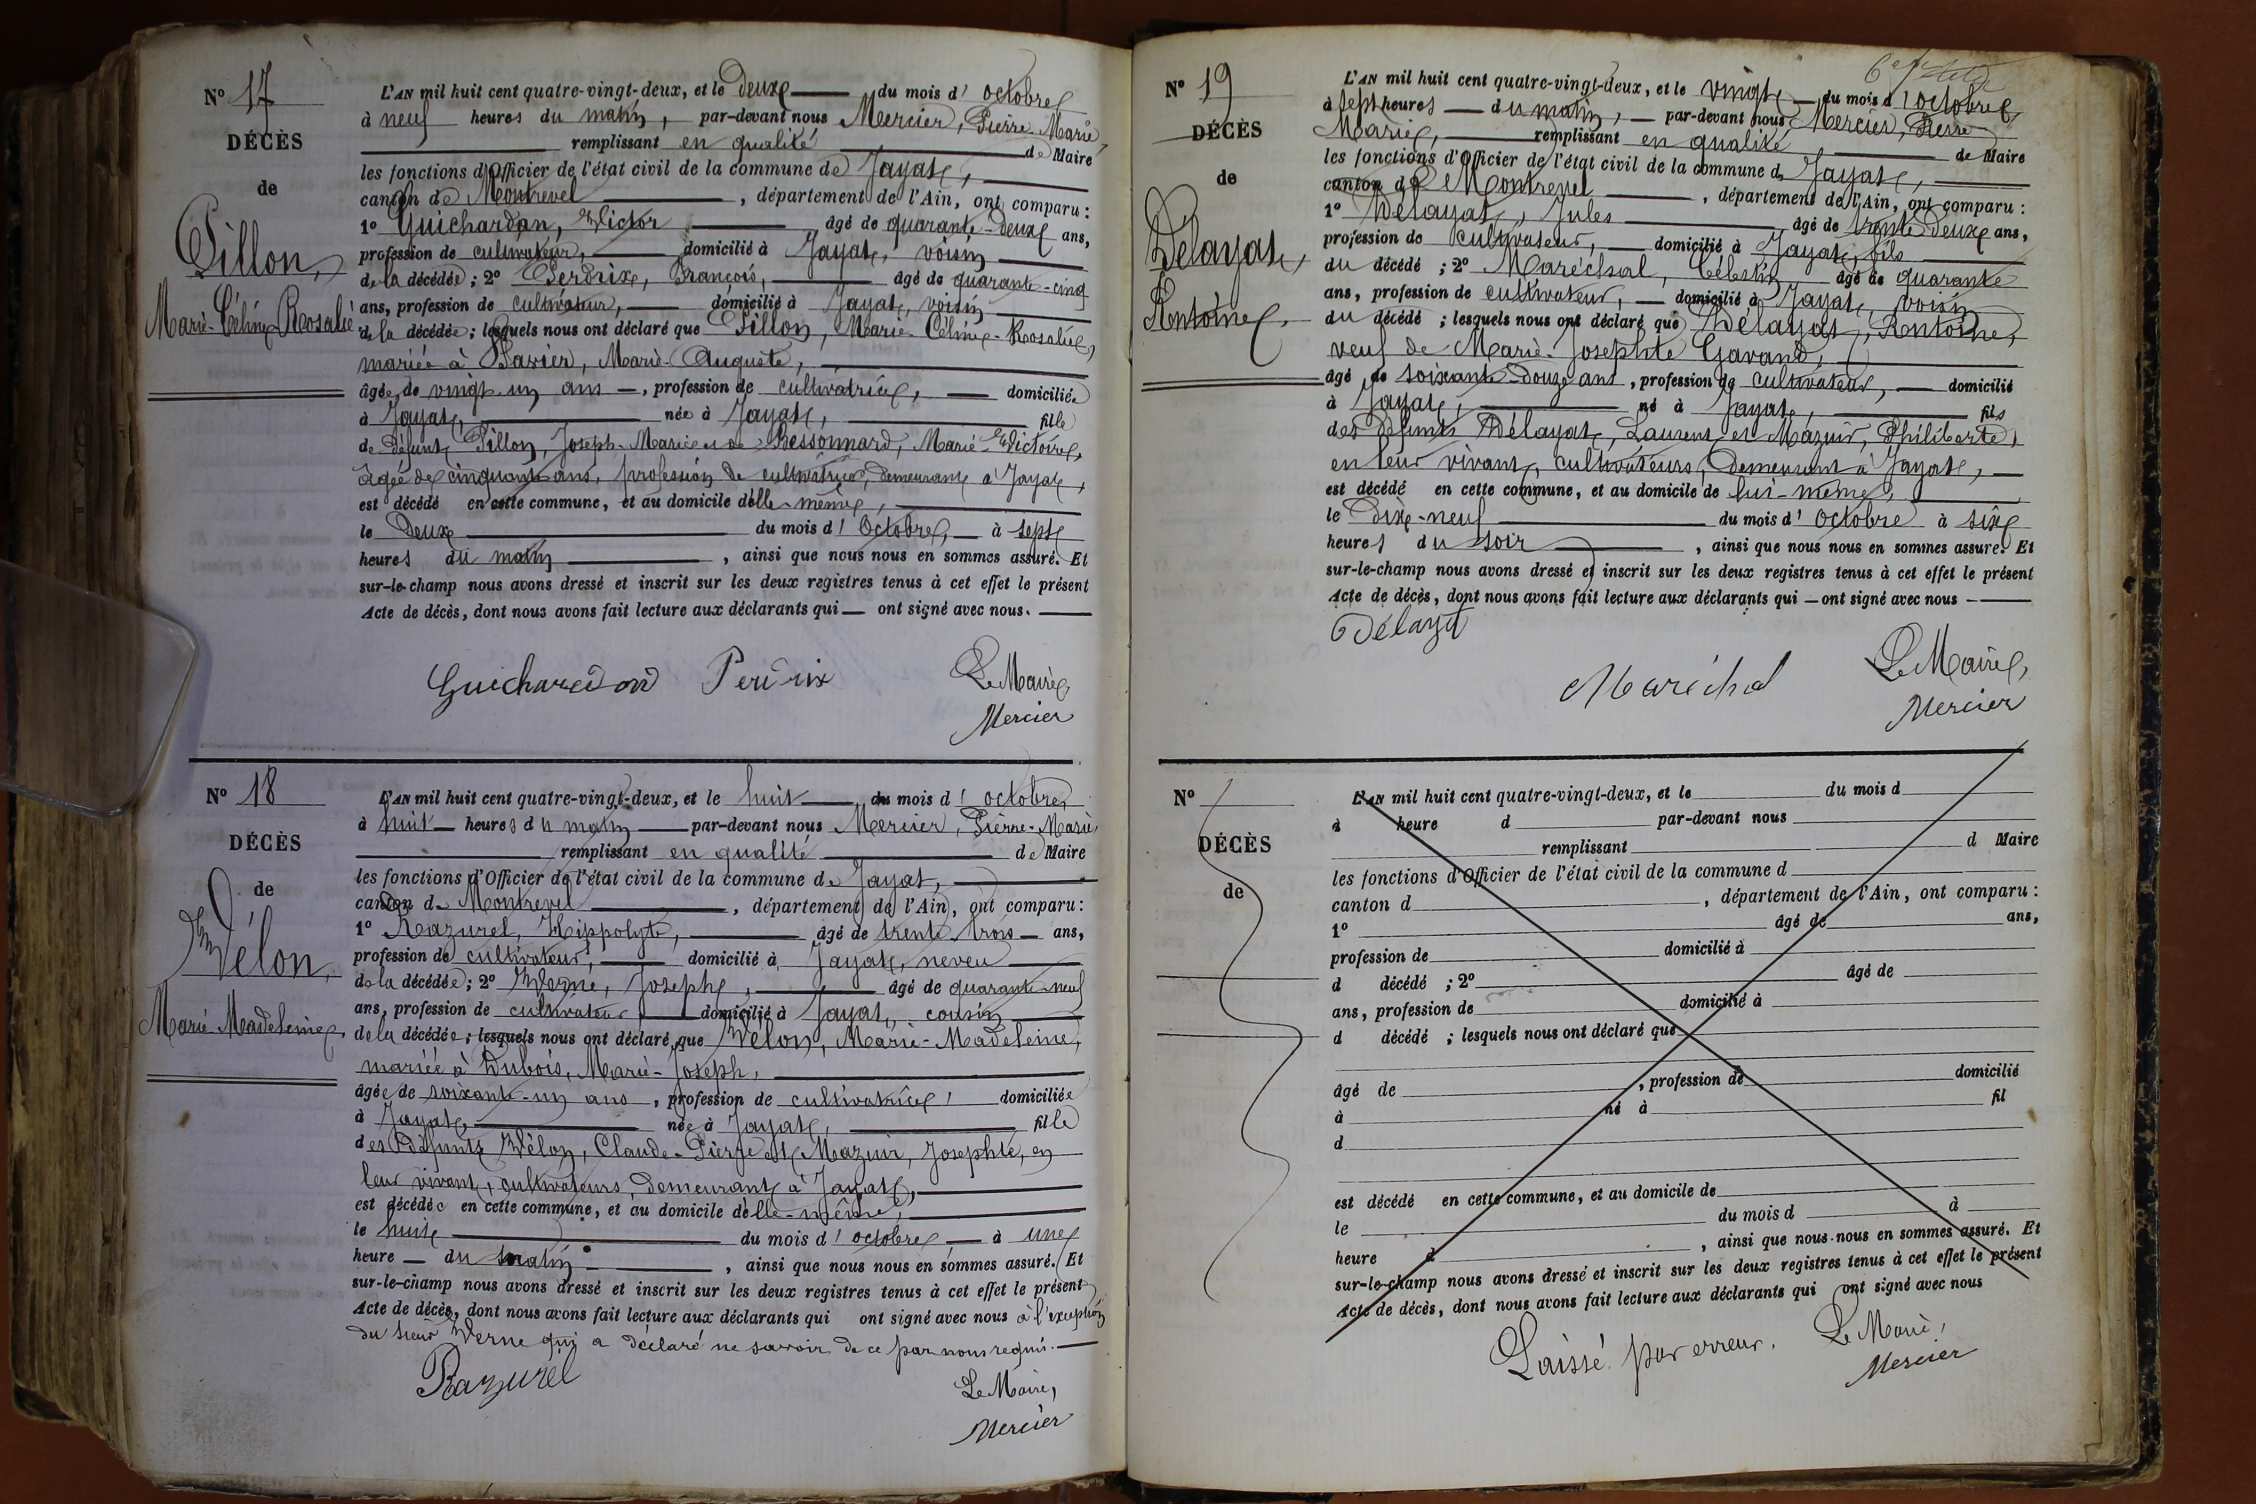 N° 17
DÉCÈS
de
Pillon,
Marie-Céline Rosalie
L'AN mil huit cent quatre-vingt-deux, et le Deux du mois d'octobre
à neuf heures du matin, par-devant nous Mercier, Pierre-Marie
remplissant en qualité de Maire
les fonctions d'Officier de l'état civil de la commune de Jayat,
canton de Montrevel, département de l'Ain, ont comparu :
1° Guichardon, Victor âgé de quarante-deux ans,
profession de cultivateur, domicilié à Jayat, voisin
de la décédée ; 2° Perdrix, François, âgé de quarante-cinq
ans, profession de cultivateur, domicilié à Jayat, voisin
de la décédée ; lesquels nous ont déclaré que Pillon, Marie-Céline-Rosalie,
mariée à Marie-Auguste,
âgée de vingt-un ans, profession de cultivatrice, domiciliée
à Jayat, née à Jayat, fille
de défunt Pillon, Joseph-Marie et de Bessonnard, Marie-Victoire,
âgée de cinquante ans, profession de cultivatrice, demeurant à Jayat,
est décédé en cette commune, et au domicile d'elle-même,
le Deux du mois d'octobre, à sept
heures du matin, ainsi que nous nous en sommes assuré. Et
sur-le-champ nous avons dressé et inscrit sur les deux registres tenus à cet effet le présent
Acte de décès, dont nous avons fait lecture aux déclarants qui ont signé avec nous.
Guichardon Perdrix Le Maire,
Mercier
N° 18
DÉCÈS
de
Vélon,
Marie Madeleine,
L'AN mil huit cent quatre-vingt-deux, et le huit du mois d'octobre,
à huit heures du matin par-devant nous Mercier, Pierre-Marie,
remplissant en qualité de Maire
les fonctions d'Officier de l'état civil de la commune de Jayat,
canton de Montrevel, département de l'Ain, ont comparu :
1° Razurel, Hippolyte, âgé de trente-trois ans,
profession de cultivateur, domicilié à Jayat, neveu
de la décédée ; 2° Verne, Joseph, âgé de quarante-neuf
ans, profession de cultivateur domicilié à Jayat, cousin
de la décédée ; lesquels nous ont déclaré que Vélon, Marie-Madeleine,
mariée à Dubois, Marie-Joseph,
âgée de soixante-un ans, profession de cultivatrice, domiciliée
à Jayat, née à Jayat, fille
des défunts Vélon, Claude-Pierre et Mazuir, Josephte, en
leur vivant, cultivateurs, demeurant à Jayat,
est décédée en cette commune, et au domicile d'elle-même,
le huit du mois d'octobre à une
heure du matin, ainsi que nous nous en sommes assuré. Et
sur-le-champ nous avons dressé et inscrit sur les deux registres tenus à cet effet le présent
Acte de décès, dont nous avons fait lecture aux déclarants qui ont signé avec nous à l'exception
du sieur Verne qui a déclaré ne savoir de ce par nous requis.
Razurel Le Maire,
Mercier
N° 19
DÉCÈS
de
Délayat,
Antoine,
L'AN mil huit cent quatre-vingt-deux, et le vingt du mois d'octobre,
à sept heures du matin, par-devant nous Mercier, Pierre
Marie, remplissant en qualité de Maire
les fonctions d'Officier de l'état civil de la commune de Jayat,
canton de Montrevel, département de l'Ain, ont comparu :
1° Délayat, Jules âgé de trente-deux ans,
profession de cultivateur, domicilié à Jayat, fils
du décédé ; 2° Maréchal, Célestin âgé de quarante
ans, profession de cultivateur, domicilié à Jayat, voisin
du décédé ; lesquels nous ont déclaré que Délayat, Antoine,
veuf de Marie-Josephte Gavand,
âgé de soixante-douze ans, profession de cultivateur, domicilié
à Jayat, né à Jayat, fils
des défunts Délayat, Laurent et Mazuir, Philiberte,
en leur vivant, cultivateurs, demeurant à Jayat,
est décédé en cette commune, et au domicile de lui-même,
le dix-neuf du mois d'octobre à six
heures du soir, ainsi que nous nous en sommes assuré. Et
sur-le-champ nous avons dressé et inscrit sur les deux registres tenus à cet effet le présent
Acte de décès, dont nous avons fait lecture aux déclarants qui ont signé avec nous
Délayat
Maréchal Le Maire,
Mercier
N°
DÉCÈS
de
L'AN mil huit cent quatre-vingt-deux, et le du mois d
à heure d par-devant nous
remplissant d Maire
les fonctions d'Officier de l'état civil de la commune d
canton d , département de l'Ain, ont comparu :
1° âgé de ans,
profession de domicilié à
d décédé ; 2° âgé de
ans, profession de domicilié à
d décédé ; lesquels nous ont déclaré que
âgé de , profession de domicilié
à né à fil
d
est décédé en cette commune, et au domicile de
le du mois d à
heure d , ainsi que nous nous en sommes assuré. Et
sur-le-champ nous avons dressé et inscrit sur les deux registres tenus à cet effet le présent
Acte de décès, dont nous avons fait lecture aux déclarants qui ont signé avec nous
Laissé par erreur. Le Maire,
Mercier